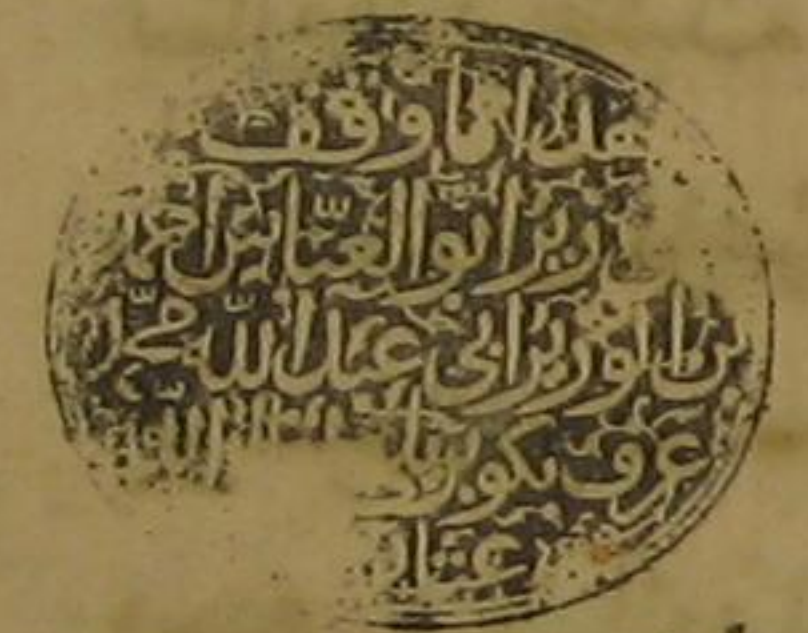 هذا ما وقف
الوزير ابو العباس احمد
بن الوزير ابي عبد الله محمد
عرف بكوبريلي الله